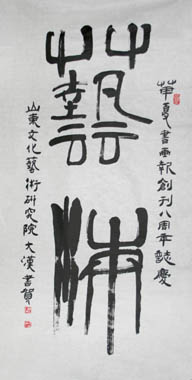 華夏書画報創刊八周年誌慶
藝
山東文化藝術研究院大漢書賀